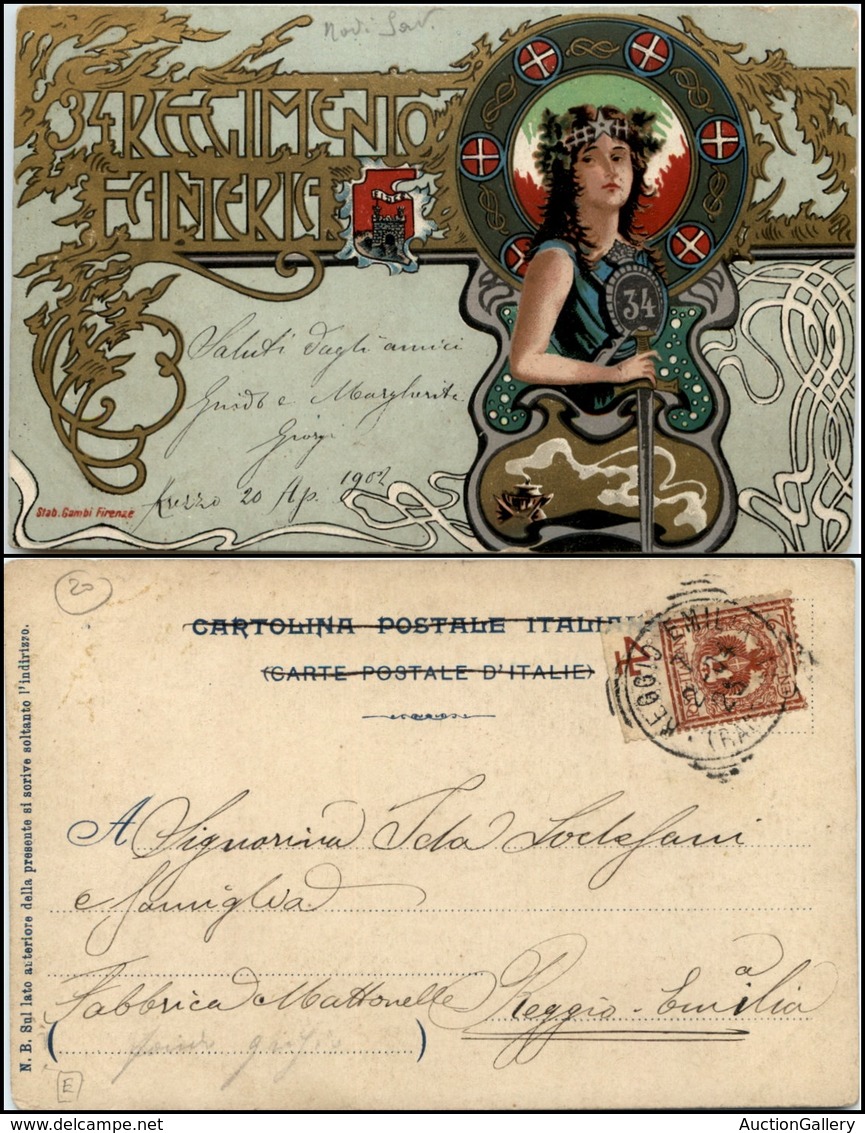 Nodi Sav.
34 REGGIMENTO
FANTERIA
34
Saluti dagli amici
Guido e Margherita
Giorgi
Arezzo 20 Ap. 1902
Stab. Gambi Firenze
20
CARTOLINA POSTALE ITALI
(CARTE POSTALE D'ITALIE)
REGGIO EMILIA
N. B. Sul lato anteriore della presente si scrive soltanto l'indirizzo.
A Signorina Ida Lodesani
e famiglia
Fabbrica Mattonelle
a
Reggio-Emilia
E
AuctionGallery